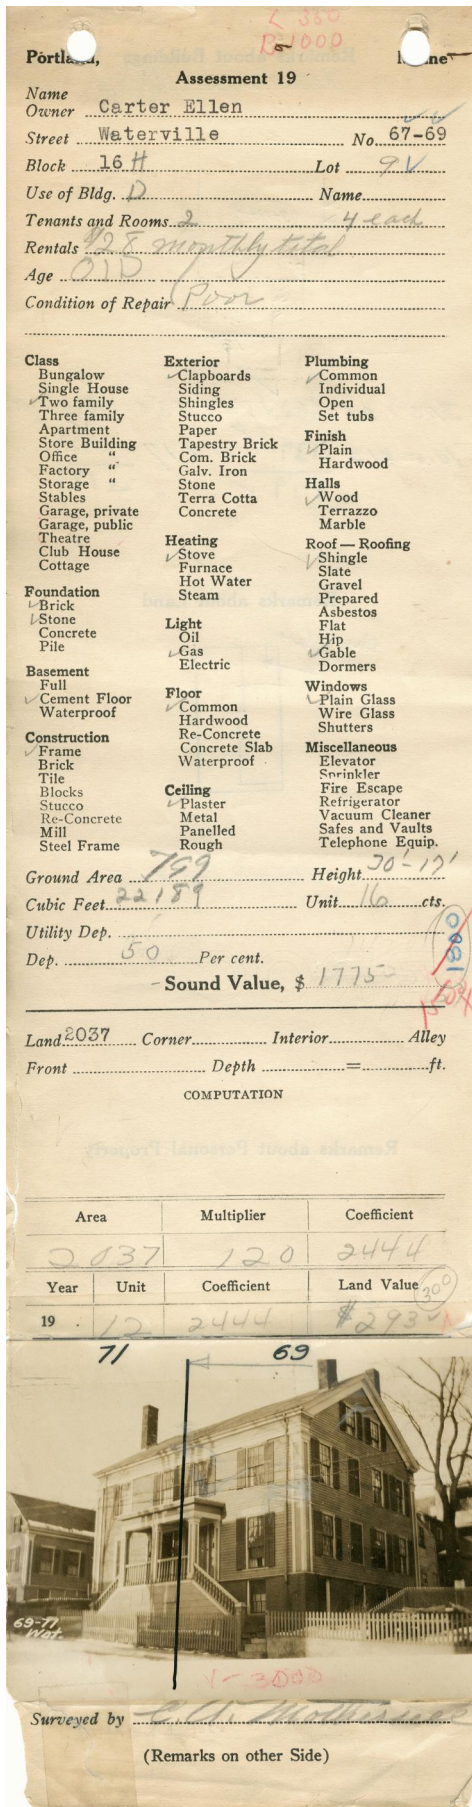 L 350
B 1000
Portland, Maine
Assessment 19
Name
Owner Carter Ellen
Street Waterville No. 67-69
Block 16 H Lot 9
Use of Bldg. D Name
Tenants and Rooms 2 4 each
Rentals $28 monthly total
Age Old
Condition of Repair Poor
Class
Bungalow
Single House
✓Two family
Three family
Apartment
Store Building
Office "
Factory "
Storage "
Stables
Garage, private
Garage, public
Theatre
Club House
Cottage
Foundation
✓Brick
✓Stone
Concrete
Pile
Basement
Full
✓Cement Floor
Waterproof
Construction
✓Frame
Brick
Tile
Blocks
Stucco
Re-Concrete
Mill
Steel Frame
Exterior
✓Clapboards
Siding
Shingles
Stucco
Paper
Tapestry Brick
Com. Brick
Galv. Iron
Stone
Terra Cotta
Concrete
Heating
✓Stove
Furnace
Hot Water
Steam
Light
Oil
✓Gas
Electric
Floor
✓Common
Hardwood
Re-Concrete
Concrete Slab
Waterproof
Ceiling
✓Plaster
Metal
Panelled
Rough
Plumbing
✓Common
Individual
Open
Set tubs
Finish
✓Plain
Hardwood
Halls
✓Wood
Terrazzo
Marble
Roof — Roofing
✓Shingle
Slate
Gravel
Prepared
Asbestos
Flat
Hip
✓Gable
Dormers
Windows
✓Plain Glass
Wire Glass
Shutters
Miscellaneous
Elevator
Sprinkler
Fire Escape
Refrigerator
Vacuum Cleaner
Safes and Vaults
Telephone Equip.
Ground Area 799 Height 30'-17'
Cubic Feet 22189 Unit 16 cts.
Utility Dep.
Dep. 50 Per cent.
1860
Sound Value, $ 1775
Land 2037 Corner Interior Alley
Front Depth = ft.
COMPUTATION
Area Multiplier Coefficient
2037 120 2444
Year Unit Coefficient Land Value
300
19 . 12 2444 $293
71 69
69-71
Wat.
1-3000
Surveyed by
(Remarks on other Side)